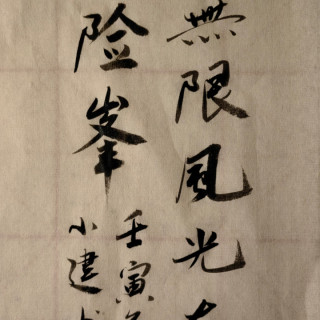 無限風光
险峯
壬寅
小建